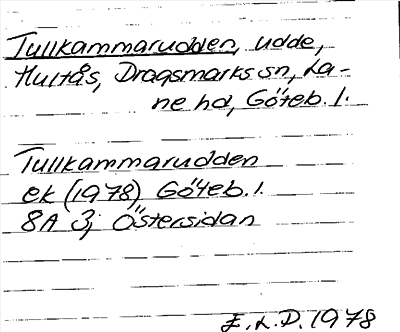 Tullkammarudden, udde,
Hultås, Dragsmarks sn, La-
ne hd, Göteb. l.
Tullkammarudden
ek (1978) Göteb. l.
8A 3j Östersidan
E.L.D. 1978